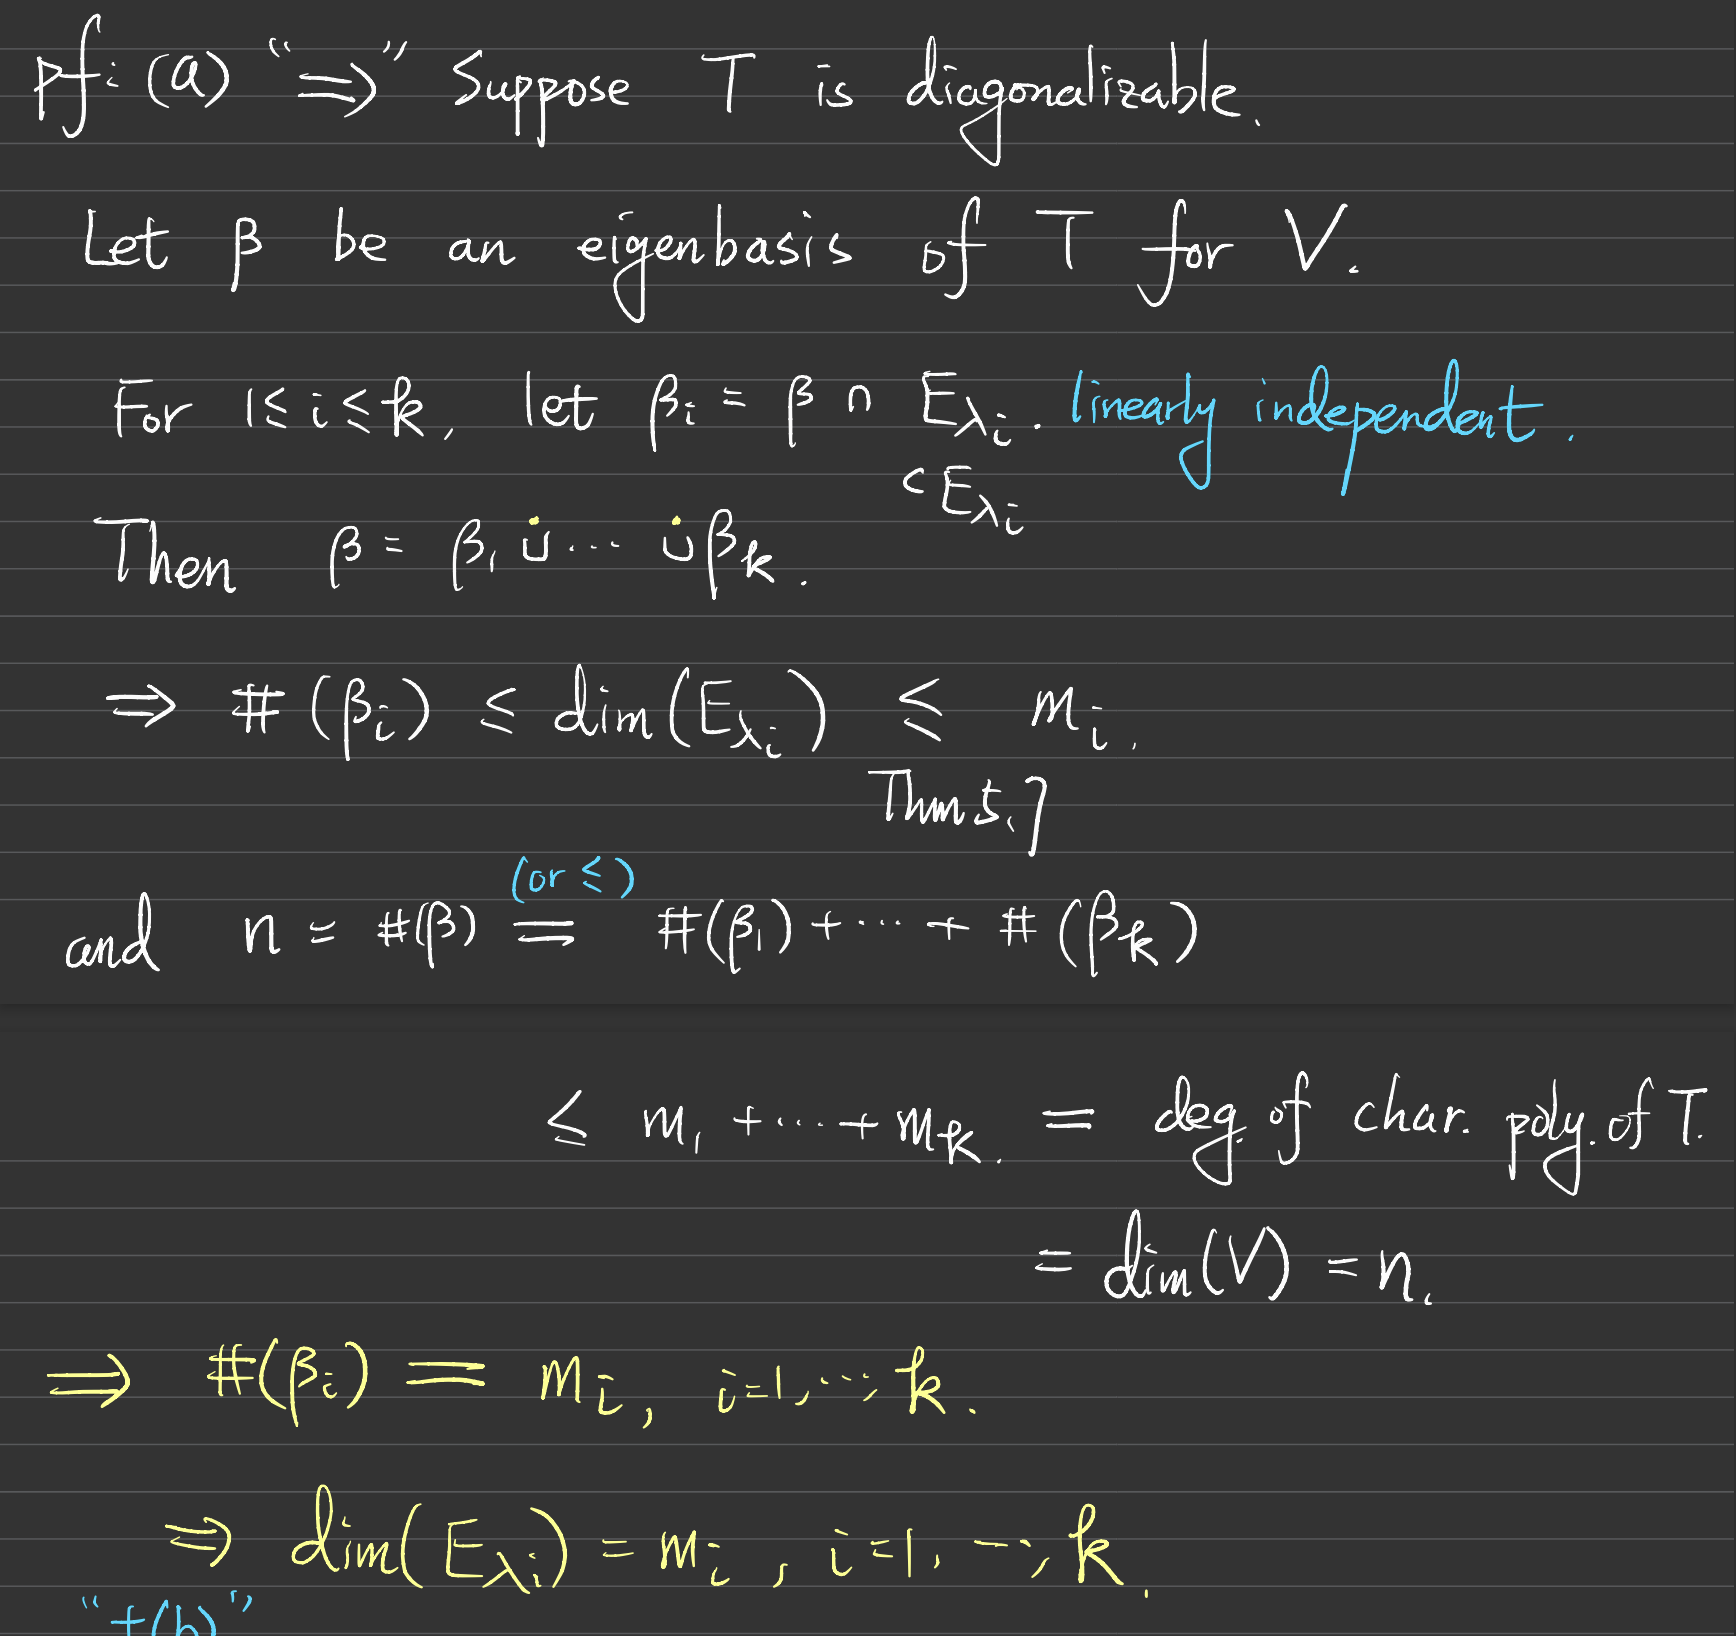 pf: (a) "⇒" Suppose T is diagonalizable.
Let β be an eigenbasis of T for V.
For 1≤i≤k, let βi = β ∩ Eλi. linearly independent.
⊂ Eλi
Then β = β1 ∪̇ ... ∪̇ βk.
⇒ #(βi) ≤ dim(Eλi) ≤ mi.
Thm 5.7
(or ≤)
and n = #(β) = #(β1) + ... + #(βk)
≤ m1 + ... + mk. = deg. of char. poly. of T.
= dim(V) = n.
⇒ #(βi) = mi, i=1, ..., k.
⇒ dim(Eλi) = mi, i=1, ..., k.
"+(b)"